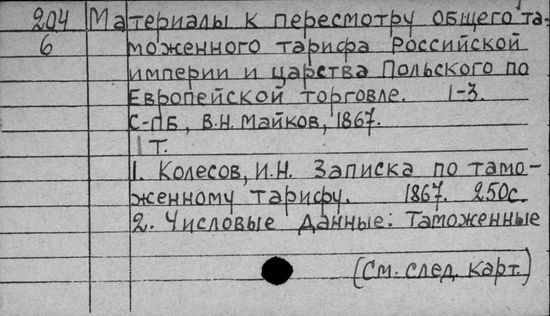 204 Материалы к пересмотру общего та-
6 моженного тарифа Российской
империи и царства Польского по
Европейской торговле. 1-3.
С-ПБ, В.Н. Майков, 1867.
1 т.
1. Колесов, И.Н. Записка по тамо-
женному тарифу. 1867. 250с.
2. Числовые данные: Таможенные
(См. след. карт.)